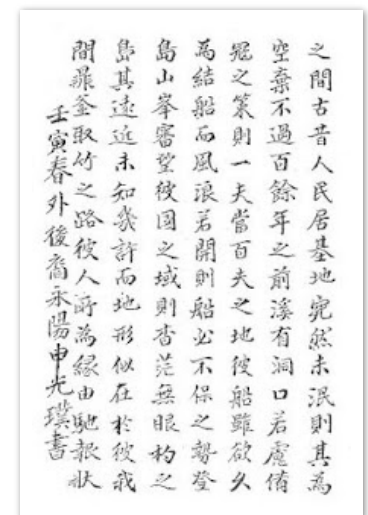 之間古昔人民居基地宛然未泯則其為
空棄不過百餘年之前溪有洞口若慮備
冦之策則一夫當百夫之地彼船雖欲久
為結船而風浪若開則船必不保之勢登
島山峯審望彼国之域則杳茫無眼杓之
島其遠近未知幾許而地形似在於彼我
間鼎釜取竹之路彼人所為緣由馳報狀
壬寅春外後裔永陽申光璞書